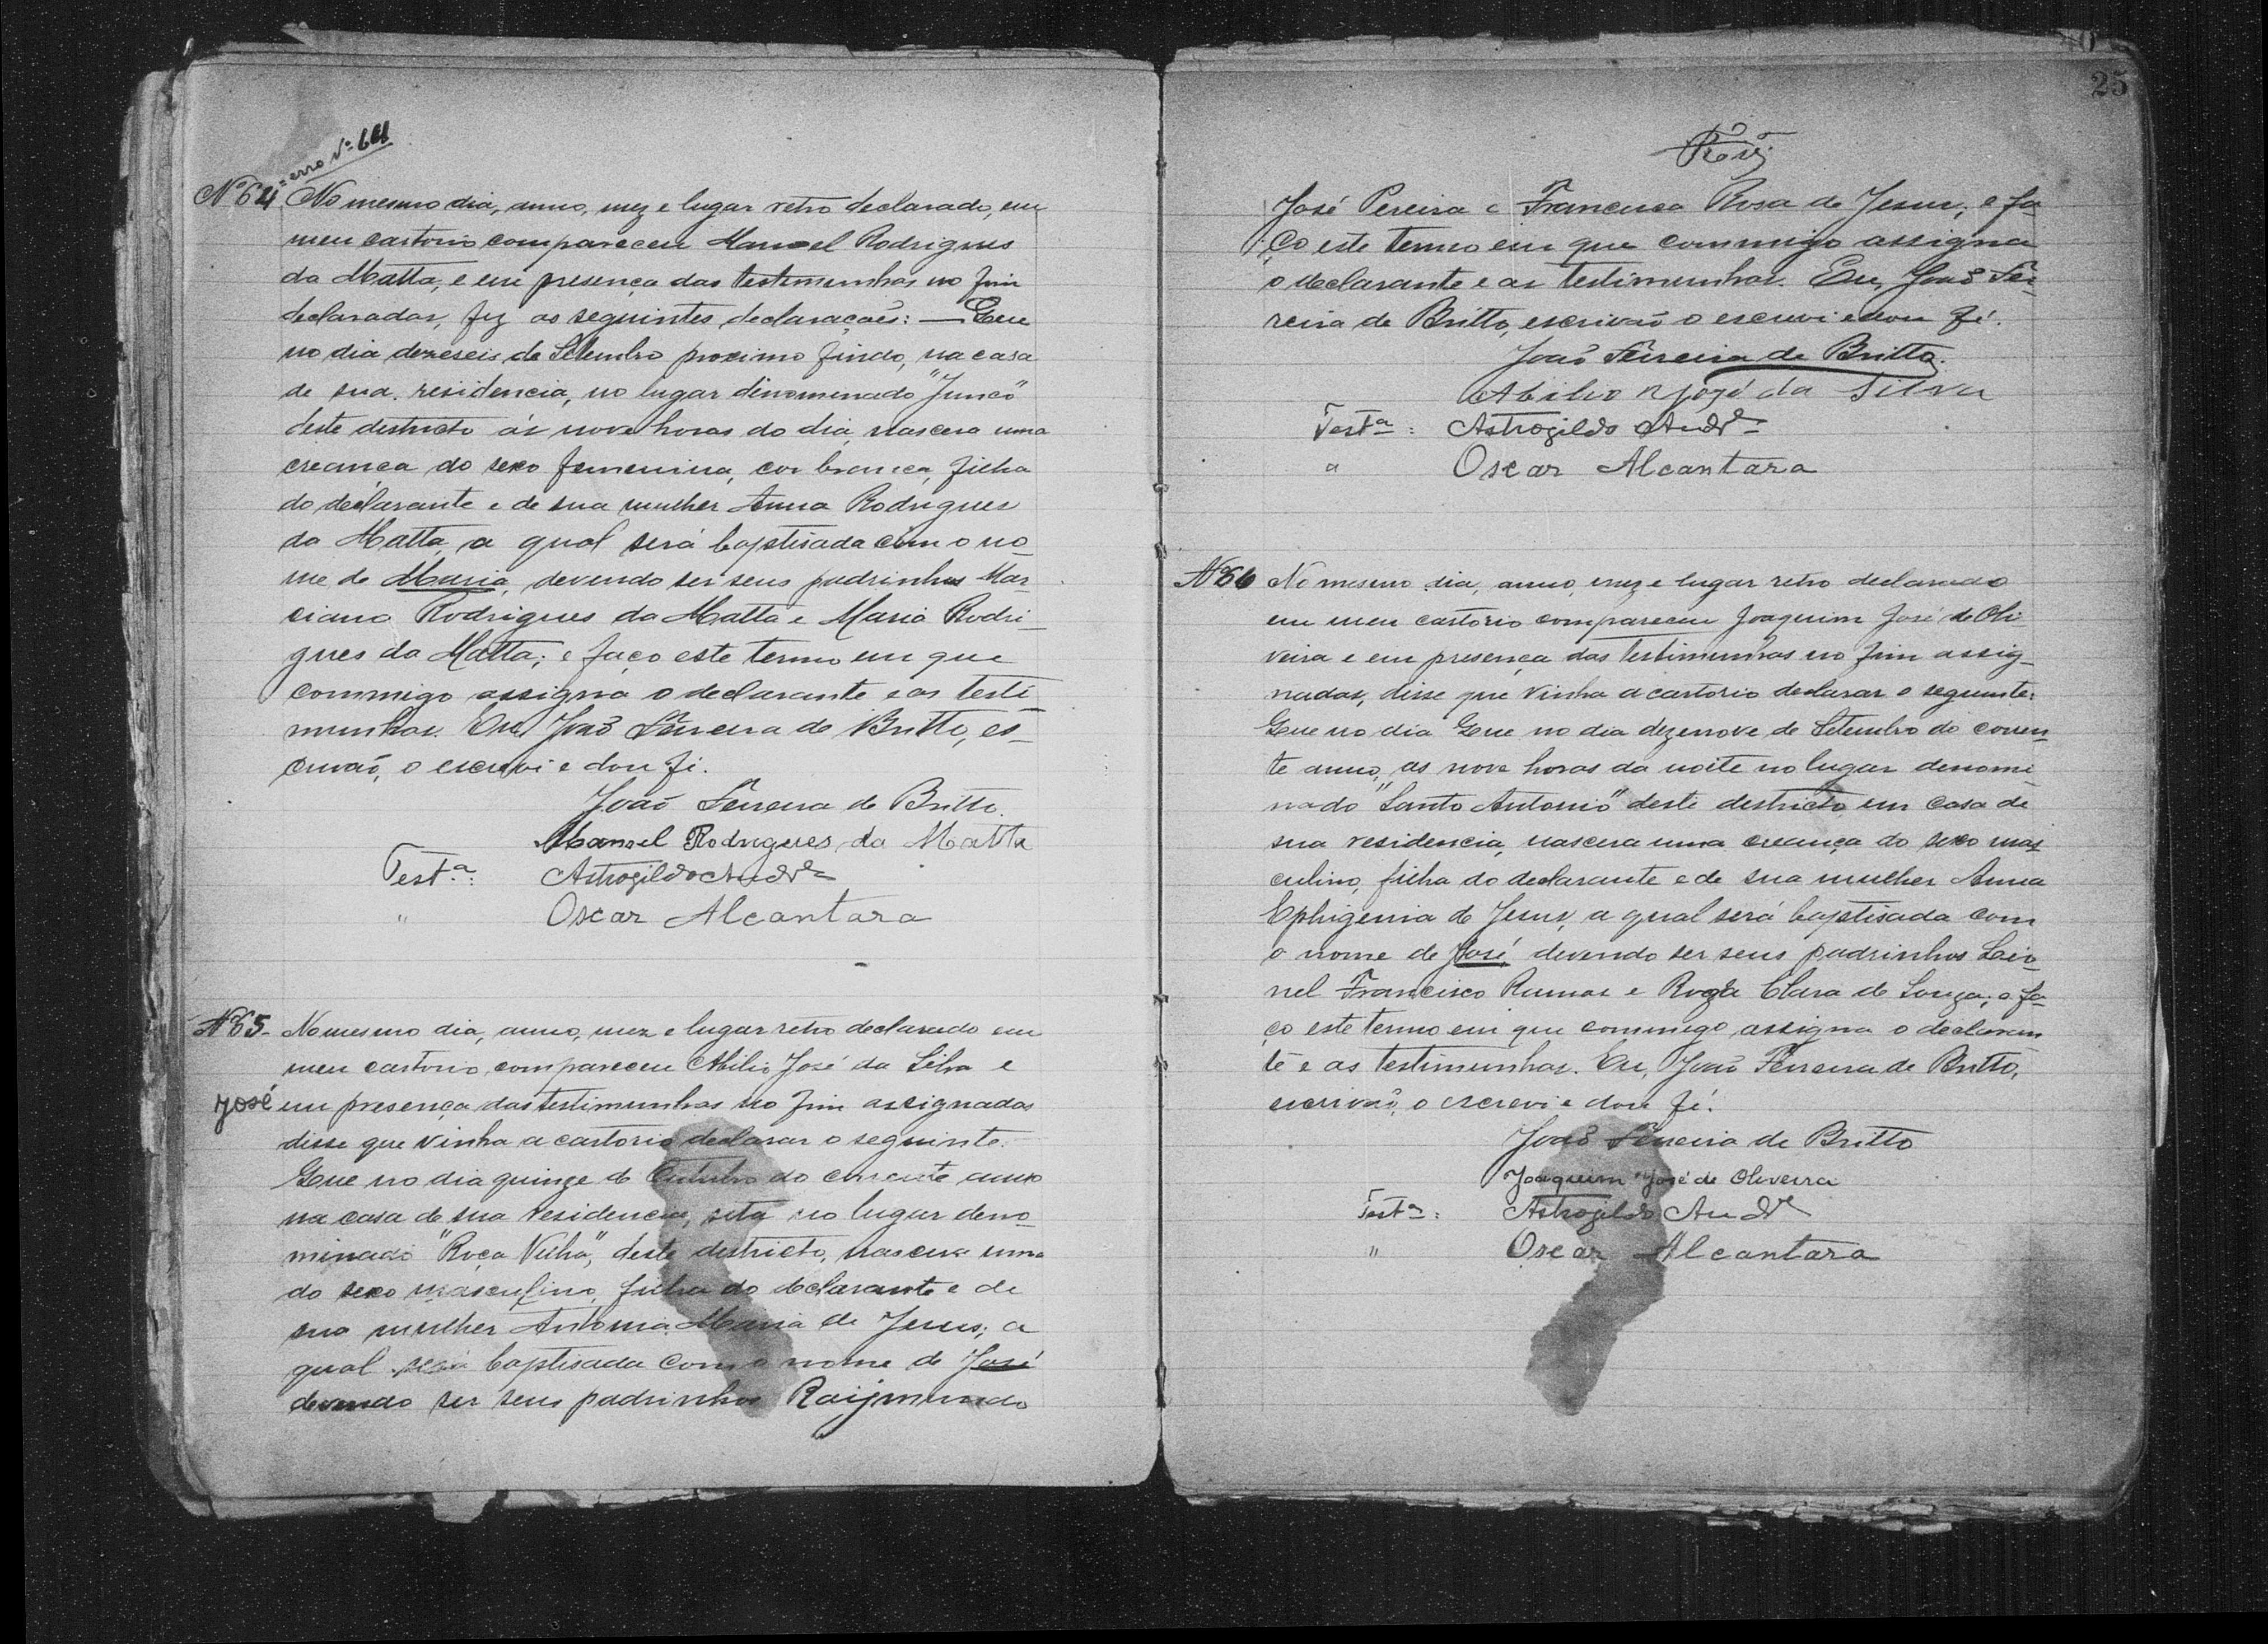 =erro Nº 64
Nº 64 No mesmo dia, anno, mez e lugar retro declarado, em
meu cartorio compareceu Manoel Rodrigues
da Matta, e em presença das testimunhas no fim
declaradas, fez as seguintes declaraçoẽs: — Que
no dia dezeseis de Setembro proximo findo, na casa
de sua residencia, no lugar denominado "Junco"
deste destricto ás nove horas do dia, nascera uma
creança do sexo femenina, cor branca, filha
do declarante e de sua mulher Anna Rodrigues
da Matta, a qual será baptisada com o no-
me de Maria, devendo ser seus padrinhos Mar-
ciano Rodrigues da Matta e Maria Rodri-
gues da Matta; e faço este termo em que
commigo assigna o declarante e as testi-
munhas. Eu João Ferreira de Britto, es-
crivão, o escrevi e dou fé.
João Ferreira de Britto.
Manoel Rodrigues da Matta
Test.ª: Astrogildo And.e
" Oscar Alcantara
Nº 65- No mesmo dia, anno, mez e lugar retro declarado em
meu cartorio compareceu Abilio José da Silva e
José em presença das testimunhas no fim assignadas
disse que vinha a cartorio declarar o seguinte.
Que no dia quinze de Outubro do corrente anno
na casa de sua residencia, sita no lugar deno-
minado "Roça Velha", deste destricto, nascera uma
do sexo masculino, filha do declarante e de
sua mulher Antonia Maria de Jesus; a
qual será baptisada com o nome de José
devendo ser seus padrinhos Raijmundo
25
José Pereira e Francisca Rosa de Jesus; e fa-
ço este termo em que commigo assigna
o declarante e as testimunhas. Eu, João Fer-
reira de Britto, escrivão o escrevi e dou fé.
João Ferreira de Britto.
Abilio José da Silva
Testª: Astrogildo And.e
" Oscar Alcantara
Nº 66 No mesmo dia, anno, mez e lugar retro declarado
em meu cartorio compareceu Joaquim José de Oli
veira e em presença das testimunhas no fim assig-
nadas, disse que vinha a cartorio declarar o seguinte:
Que no dia Que no dia dezenove de Setembro do corren-
te anno, as nove horas da noite no lugar denomi
nado "Santo Antonio" deste destricto em casa de
sua residencia, nascera uma creança do sexo mas
culino, filha do declarante e de sua mulher Anna
Ephigenia de Jesus, a qual será baptisada com
o nome de José, devendo ser seus padrinhos Leio-
nel Francisco Ramos e Roza Clara de Souza; e fa-
ço este termo em que commigo assigna o declaran
te e as testimunhas. Eu, João Ferreira de Britto,
escrivão, o escrevi e dou fé.
João Ferreira de Britto
Joaquim José de Oliveira
Testª: Astrogildo And.e
" Oscar Alcantara